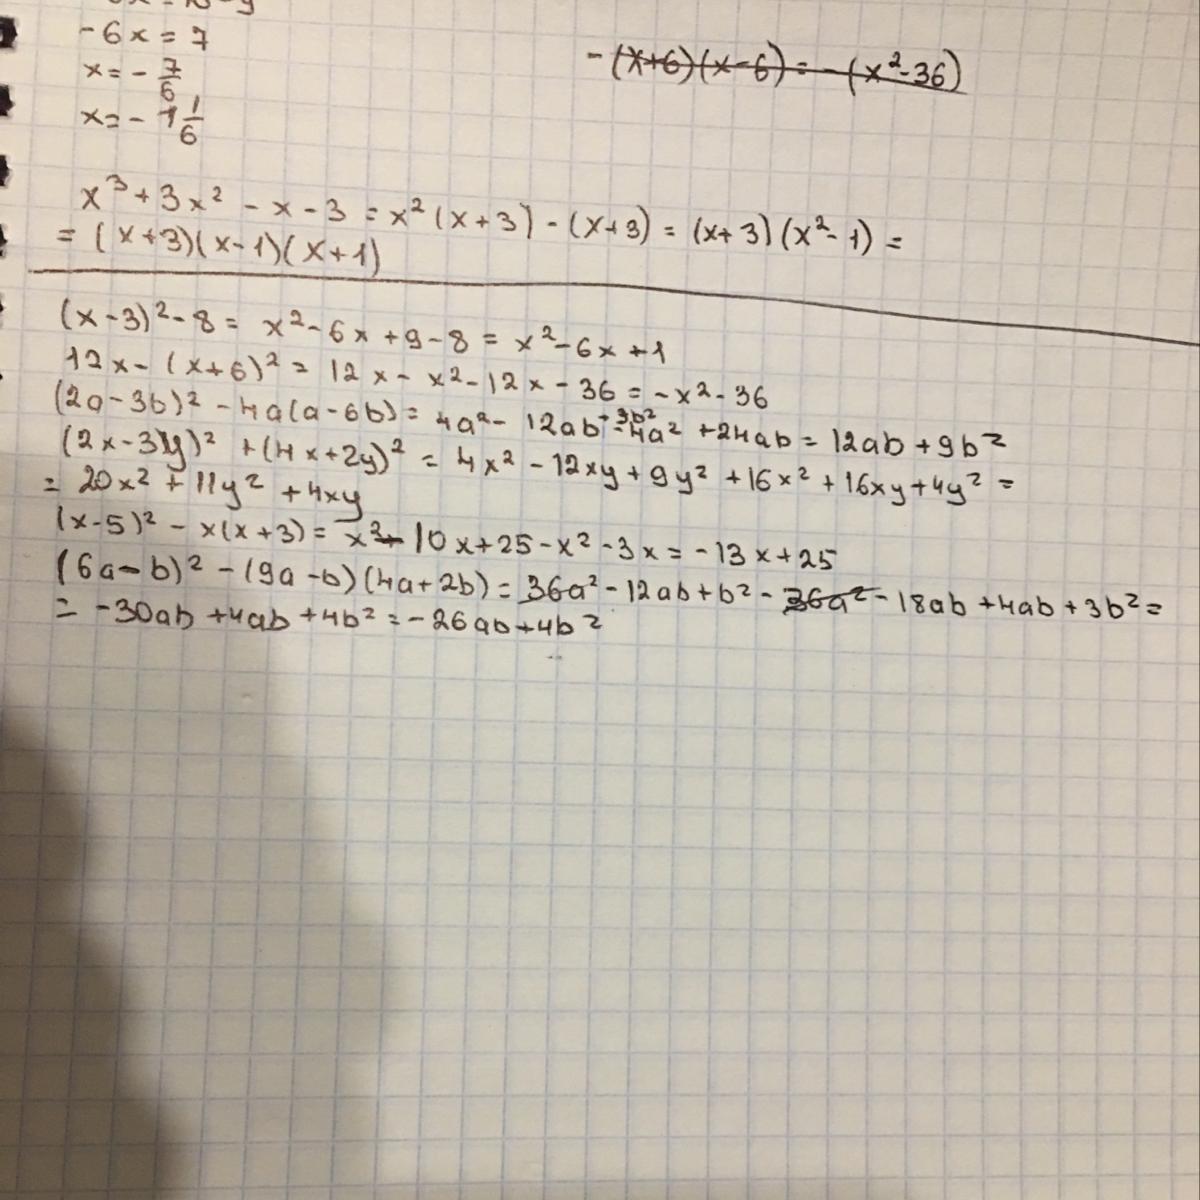 -6x = 7
x = - 7/6
x = - 1 1/6
-(x+6)(x-6) = -(x²-36)
x³ + 3x² - x - 3 = x²(x+3) - (x+3) = (x+3)(x²-1) =
= (x+3)(x-1)(x+1)
(x-3)² - 8 = x² - 6x + 9 - 8 = x² - 6x + 1
12x - (x+6)² = 12x - x² - 12x - 36 = -x² - 36
(2a-3b)² - 4a(a-6b) = 4a² - 12ab + 3b² - 4a² + 24ab = 12ab + 9b²
(2x-3y)² + (4x+2y)² = 4x² - 12xy + 9y² + 16x² + 16xy + 4y² =
= 20x² + 11y² + 4xy
(x-5)² - x(x+3) = x² - 10x + 25 - x² - 3x = -13x + 25
(6a-b)² - (9a-b)(4a+2b) = 36a² - 12ab + b² - 36a² - 18ab + 4ab + 3b² =
= -30ab + 4ab + 4b² = -26ab + 4b²